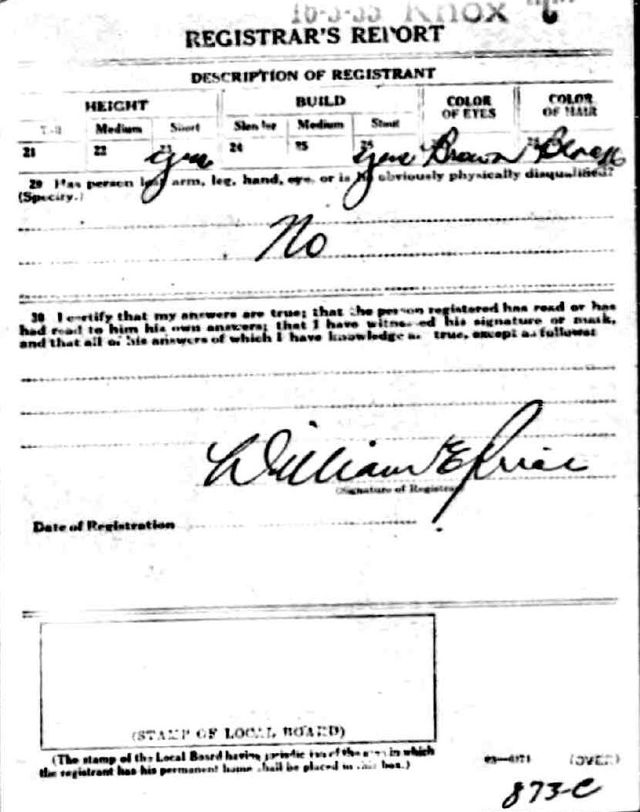 16-3-33 Knox "C"
REGISTRAR'S REPORT
DESCRIPTION OF REGISTRANT
HEIGHT BUILD COLOR OF EYES COLOR OF HAIR
Tall Medium Short Slender Medium Stout
21 22 23 yes 24 25 26 yes Brown 28 Black
29 Has person lost arm, leg, hand, eye, or is he obviously physically disqualified?
(Specify.)
No
30 I certify that my answers are true; that the person registered has read or has
had read to him his own answers; that I have witnessed his signature or mark,
and that all of his answers of which I have knowledge are true, except as follows:
William E Price
(Signature of Registrar)
Date of Registration
(STAMP OF LOCAL BOARD)
(The stamp of the Local Board having jurisdiction of the area in which
the registrant has his permanent home shall be placed in this box.)
03—6171 (OVER)
873-C